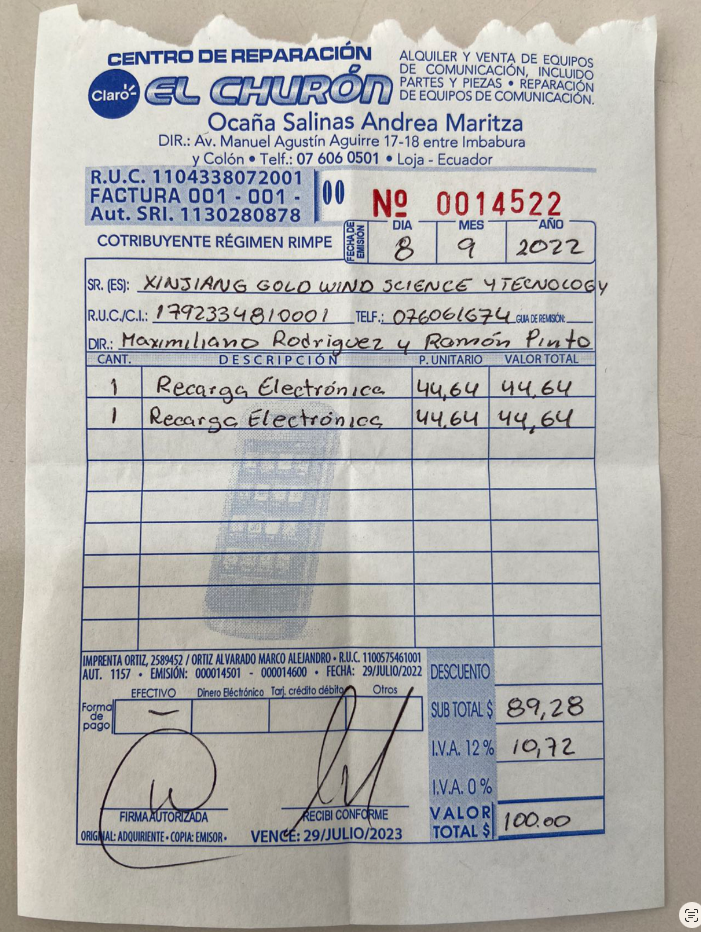 CENTRO DE REPARACIÓN
Claro
EL CHURÓN
ALQUILER Y VENTA DE EQUIPOS
DE COMUNICACIÓN, INCLUIDO
PARTES Y PIEZAS • REPARACIÓN
DE EQUIPOS DE COMUNICACIÓN.
Ocaña Salinas Andrea Maritza
DIR.: Av. Manuel Agustín Aguirre 17-18 entre Imbabura
y Colón • Telf.: 07 606 0501 • Loja - Ecuador
R.U.C. 1104338072001
FACTURA 001 - 001 - 00
Aut. SRI. 1130280878
Nº 0014522
COTRIBUYENTE RÉGIMEN RIMPE
FECHA DE EMISIÓN
DIA MES AÑO
8 9 2022
SR. (ES): XINJIANG GOLD WIND SCIENCE Y TECNOLOGY
R.U.C./C.I.: 1792334810001 TELF.: 076061674 GUIA DE REMISIÓN:
DIR.: Maximiliano Rodriguez y Ramón Pinto
CANT. DESCRIPCIÓN P. UNITARIO VALOR TOTAL
1 Recarga Electrónica 44,64 44,64
1 Recarga Electrónica 44,64 44,64
IMPRENTA ORTIZ, 2589452 / ORTIZ ALVARADO MARCO ALEJANDRO • R.U.C. 1100575461001
AUT. 1157 • EMISIÓN: 000014501 - 000014600 • FECHA: 29/JULIO/2022
Forma de pago
EFECTIVO Dinero Eléctrónico Tarj. crédito débito Otros
DESCUENTO
SUB TOTAL $ 89,28
I.V.A. 12 % 10,72
I.V.A. 0 %
VALOR TOTAL $ 100.00
FIRMA AUTORIZADA RECIBI CONFORME
ORIGINAL: ADQUIRIENTE • COPIA: EMISOR • VENCE: 29/JULIO/2023